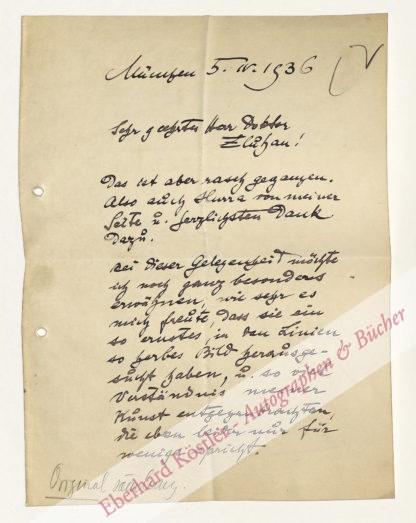 München 5. IV. 1936
Sehr geehrter Herr Doktor
Eluhan!
Das ist aber rasch gegangen.
Also auch Hurra von meiner
Seite u. herzlichsten Dank
dazu.
Bei dieser Gelegenheit möchte
ich noch ganz besonders
erwähnen, wie sehr es
mich freute dass sie ein
so ernstes, in den Linien
so herbes Bild herausge-
sucht haben, u. so viel
Verständnis meiner
Kunst entgegenbrachten,
die eben leider nur für
wenige spricht.
Original
Eberhard Köstler Autographen & Bücher